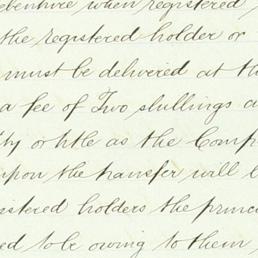 ebenture when registered
the registered holder or
must be delivered at th
a fee of Two shillings a
ty or title as the Comp
upon the transfer will b
istered holders the princ
ed to be owing to them